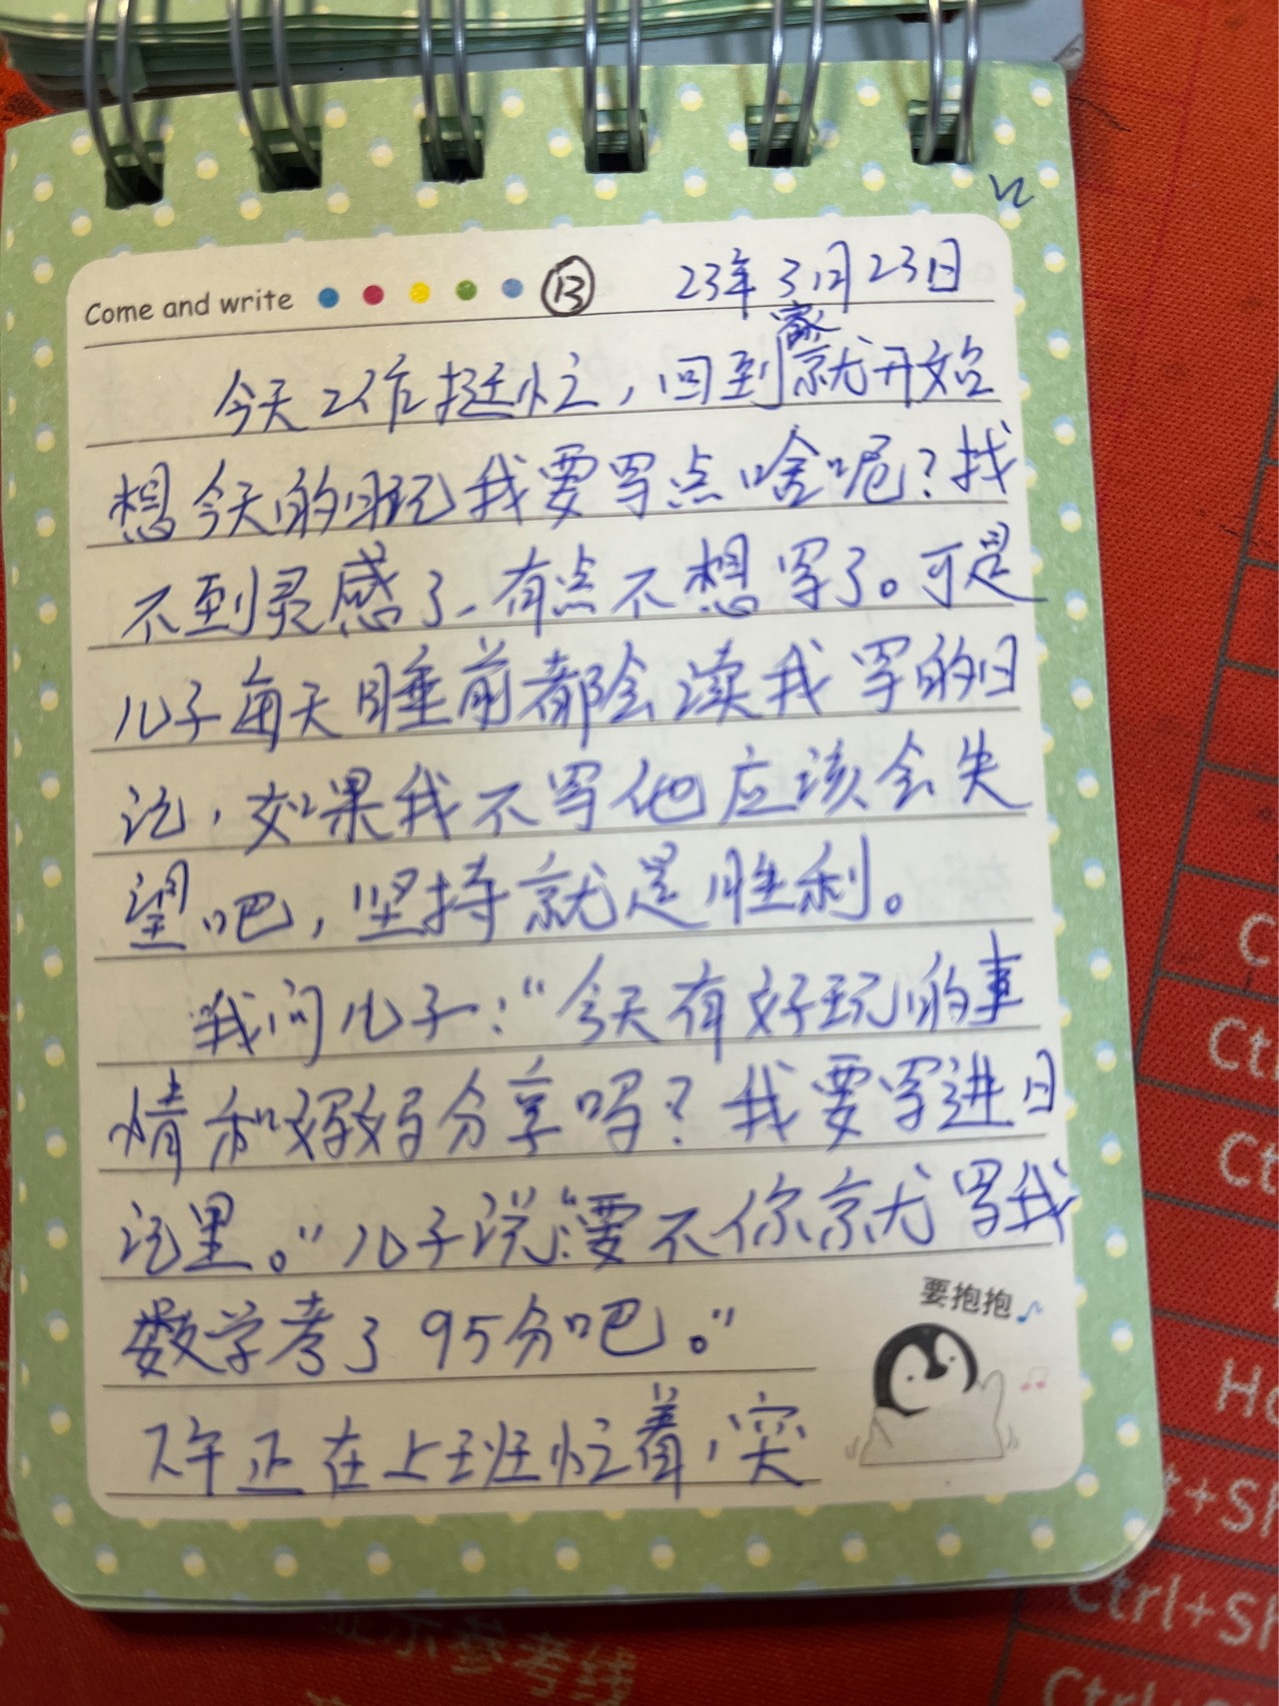 Come and write ⑬ 23年3月23日
今天工作挺忙，回到家就开始
想今天的日记我要写点啥呢？找
不到灵感了、有点不想写了。可是
儿子每天睡前都会读我写的日
记，如果我不写他应该会失
望吧，坚持就是胜利。
我问儿子：“今天有好玩的事
情和妈妈分享吗？我要写进日
记里。”儿子说：“要不你就写我
数学考了95分吧。”
要抱抱
下午正在上班忙着，突
C
Ct
Ct
Ho
t+Sh
Ctrl+Sh
Ctrl+
显示参考线